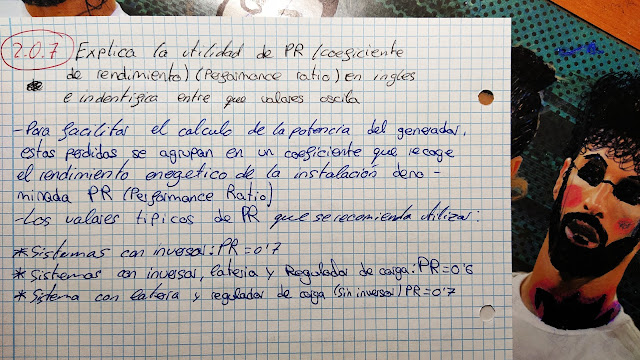 2.0.7 Explica la utilidad de PR (coeficiente
de rendimiento) (Performance ratio) en ingles
e indentifica entre que valores oscila
-Para facilitar el calculo de la potencia del generador,
estas perdidas se agrupan en un coeficiente que recoge
el rendimiento energetico de la instalación deno-
minada PR (Performance Ratio)
-Los valores tipicos de PR que se recomienda utilizar:
*Sistemas con inversor: PR=0'7
*Sistemas con inversor, bateria y Regulador de carga: PR=0'6
*Sistema con bateria y regulador de carga (sin inversor) PR=0'7